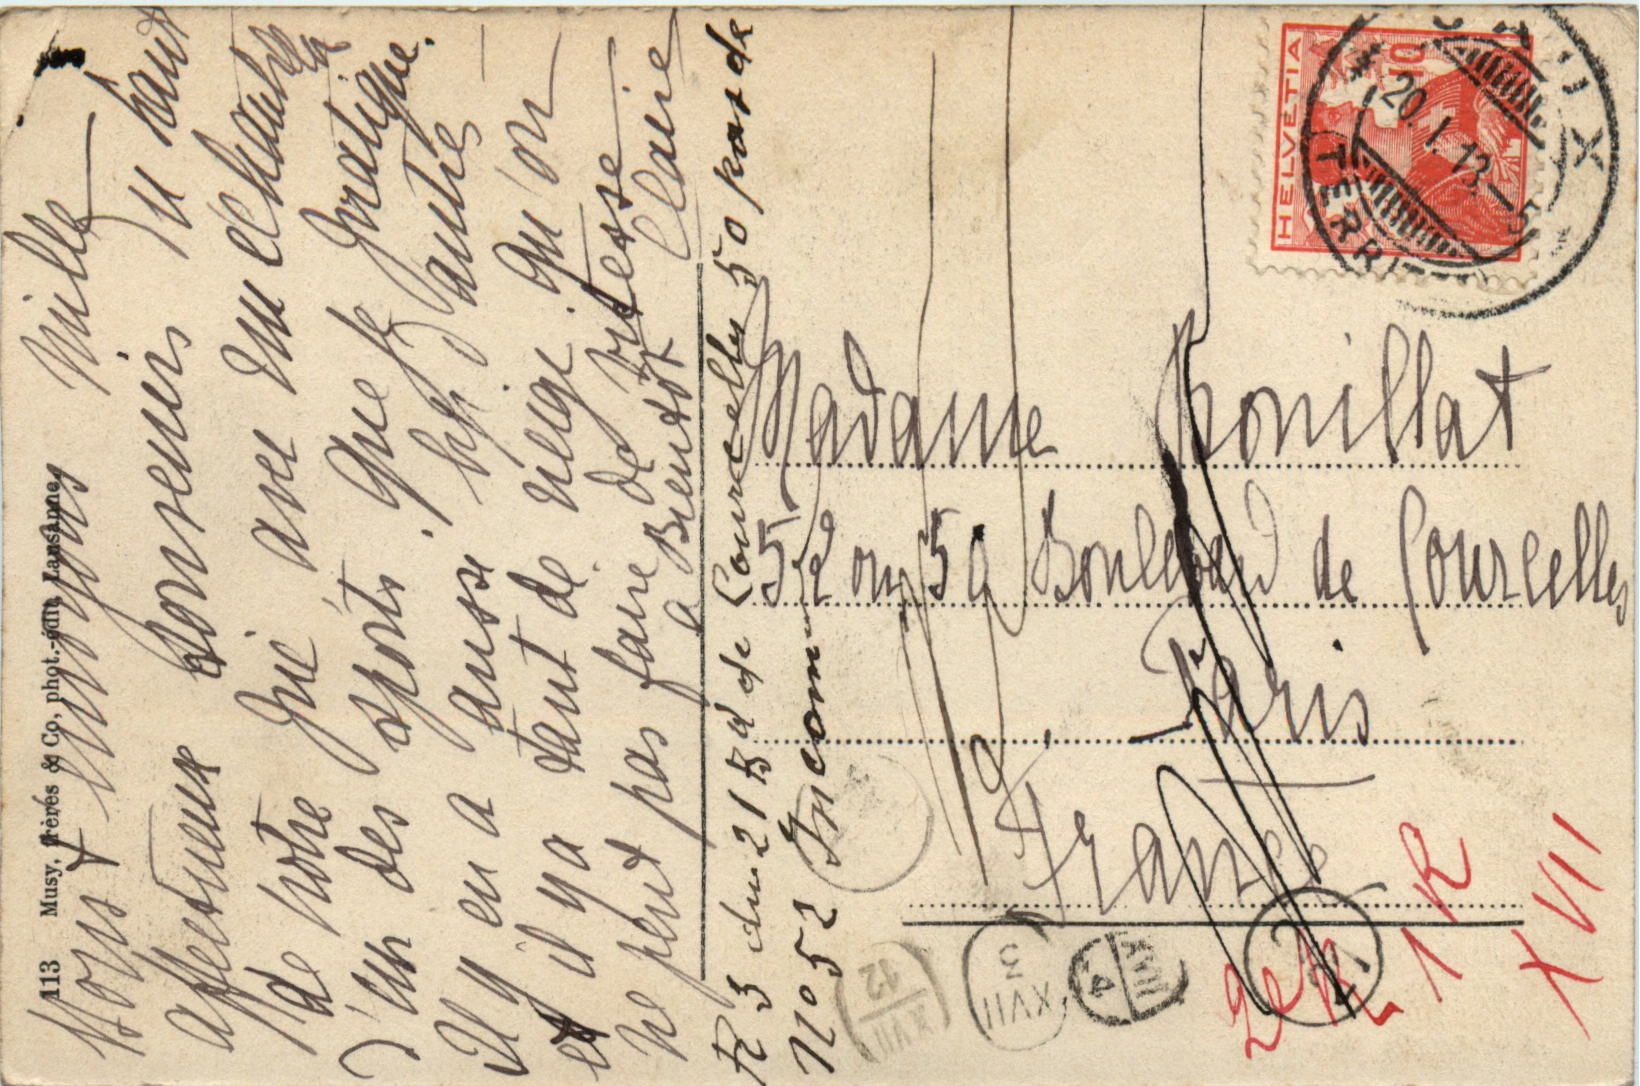 113 Musy, frères & Co, phot.-édit. Lausanne.
Nous t'envoyons mille
affectueux souvenirs du haut
de notre avec un échantillon
d'un des sports que je pratique.
Il y en a aussi d'autres
et il y a tant de neige qu'on
ne peut pas faire de vitesse
à Bientôt Claire
R 3 du 21 Bd de Courcelles 50 pas de
No 52 Inconnu
Madame Bouillat
52 ou 59 Boulevard de Courcelles
Paris
France
HELVETIA
10
CAUX
20.I.13.-5
TERRITET
XVII
12
XVII
3
XVII
4
1 R
XVII